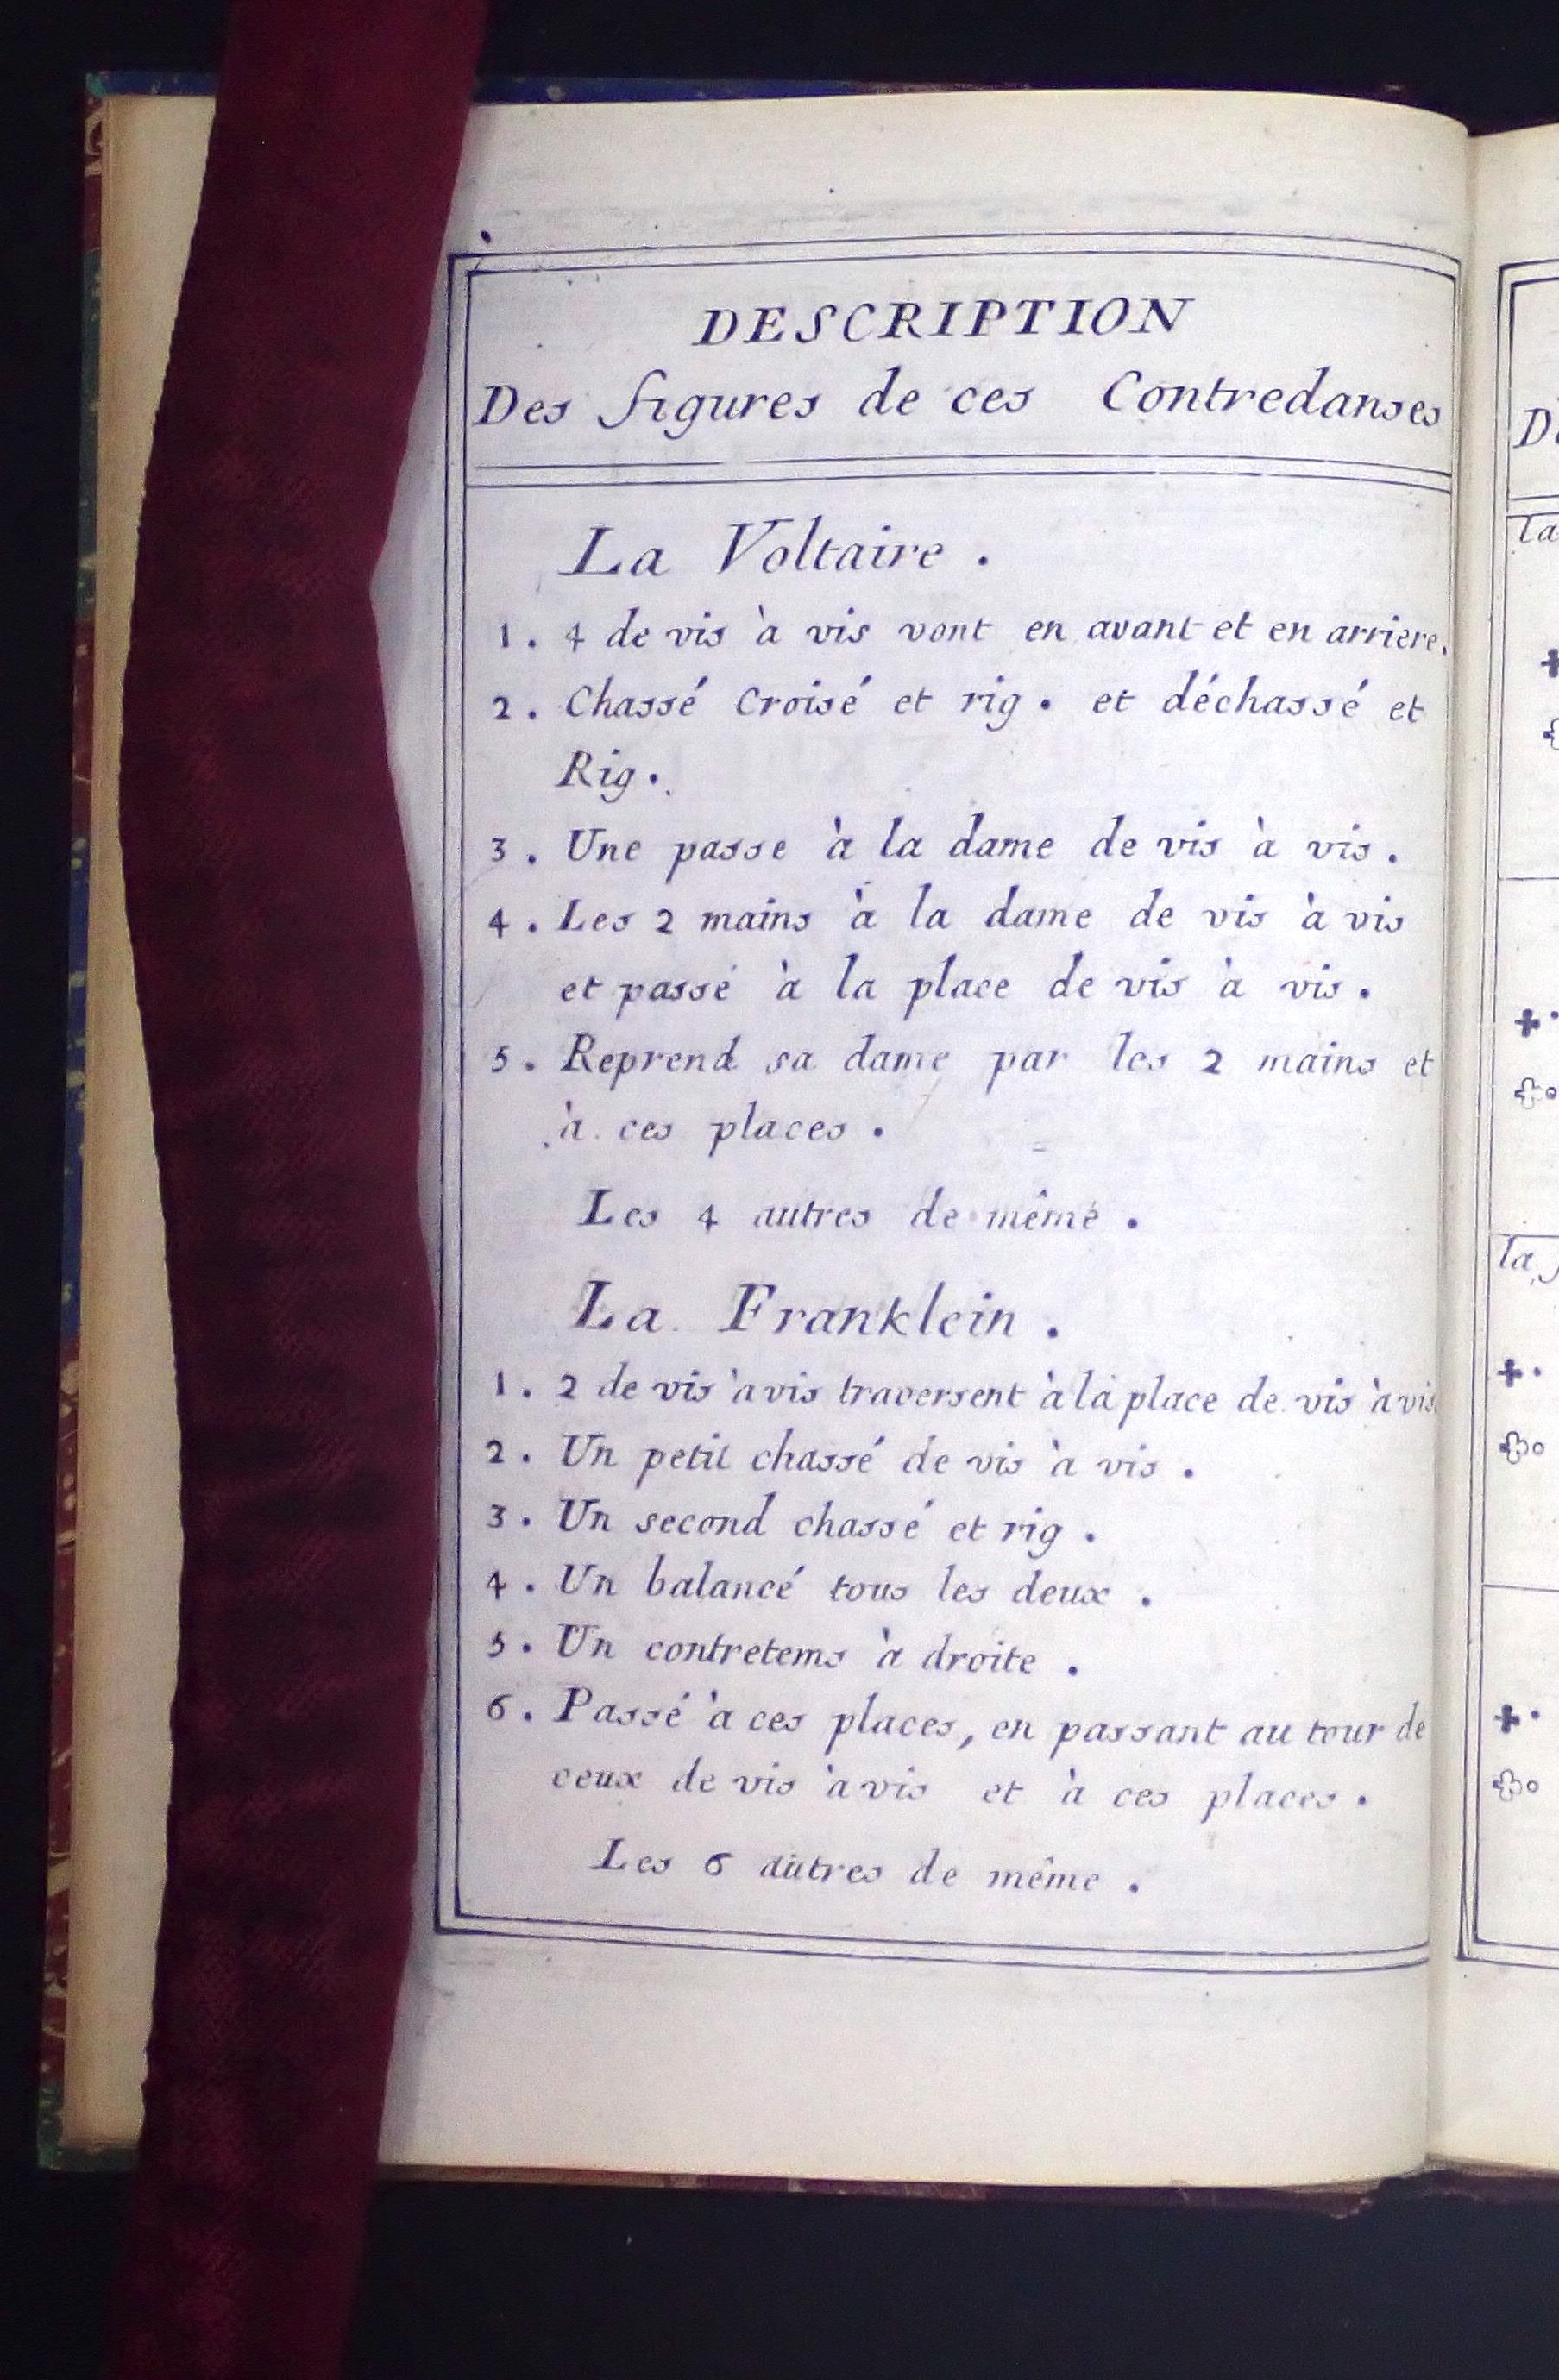 DESCRIPTION
Des figures de ces Contredanses
La Voltaire .
1 . 4 de vis à vis vont en avant et en arriere.
2 . Chassé Croisé et rig . et déchassé et
Rig .
3 . Une passe à la dame de vis à vis .
4 . Les 2 mains à la dame de vis à vis
et passé à la place de vis à vis .
5 . Reprend sa dame par les 2 mains et
à ces places .
Les 4 autres de même .
La Franklein .
1 . 2 de vis àvis traversent à la place de vis àvis
2 . Un petit chassé de vis à vis .
3 . Un second chassé et rig .
4 . Un balancé tous les deux .
5 . Un contretems à droite .
6 . Passé à ces places, en passant au tour de
ceux de vis àvis et à ces places .
Les 6 autres de même .
la
la